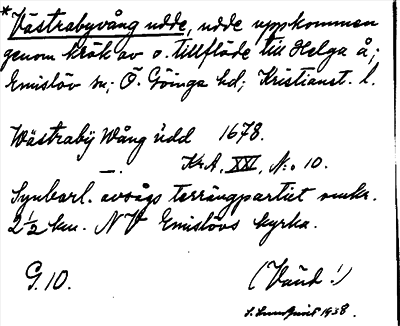 *Västrabyvång udde, udde uppkommen
genom krök av v. tillflöde till Helga å;
Emislöv sn; Ö. Göinge hd; Kristianst. l.
Wästrabÿ Wång udd 1678.
Kr.A, XXI, N:o 10.
Synbarl. avsågs terrängpartiet omkr.
2 1/2 km. NV Emislövs kyrka.
G. 10. (Vänd!)
S. Sundqvist 1938.